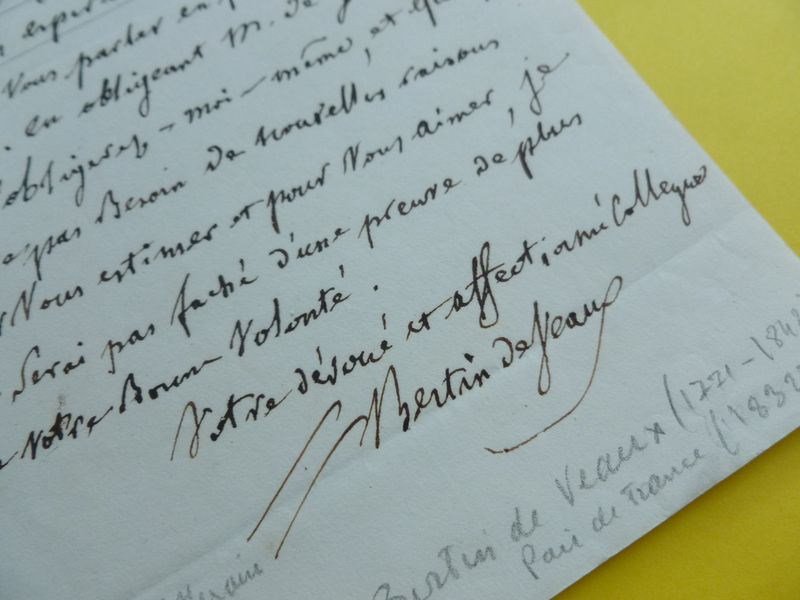 Vous parler en
en obligeant M. de
obligerez-moi-même, et
pas Besoin de nouvelles raisons
Vous estimer et pour Vous aimer, je
Serai pas faché d'une preuve de plus
Votre Bonne Volonté.
Votre dévoué et affectionné Collegue
Bertin de Veaux
Bertin de Veaux (1771-1842)
Pair de France (1832